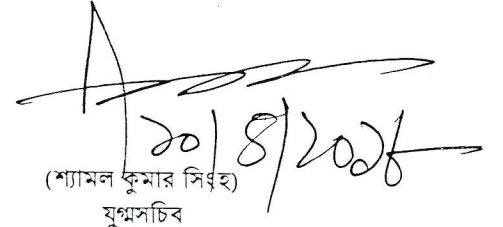 ১০/৪/২০১৮
(শ্যামল কুমার সিংহ)
যুগ্মসচিব